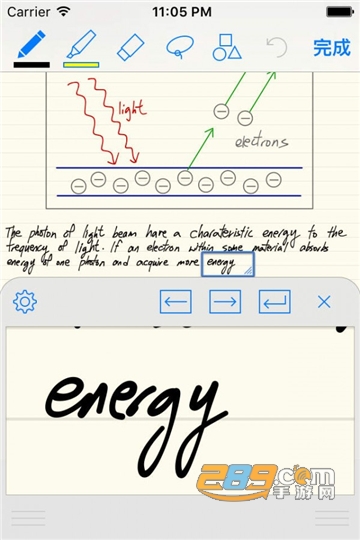 Carrier 11:05 PM
完成
light
electrons
The photon of light beam have a charateristic energy to the
frequency of light. If an electron within some material absorbs
energy of one photon and acquire more energy
energy
289.com
手游网